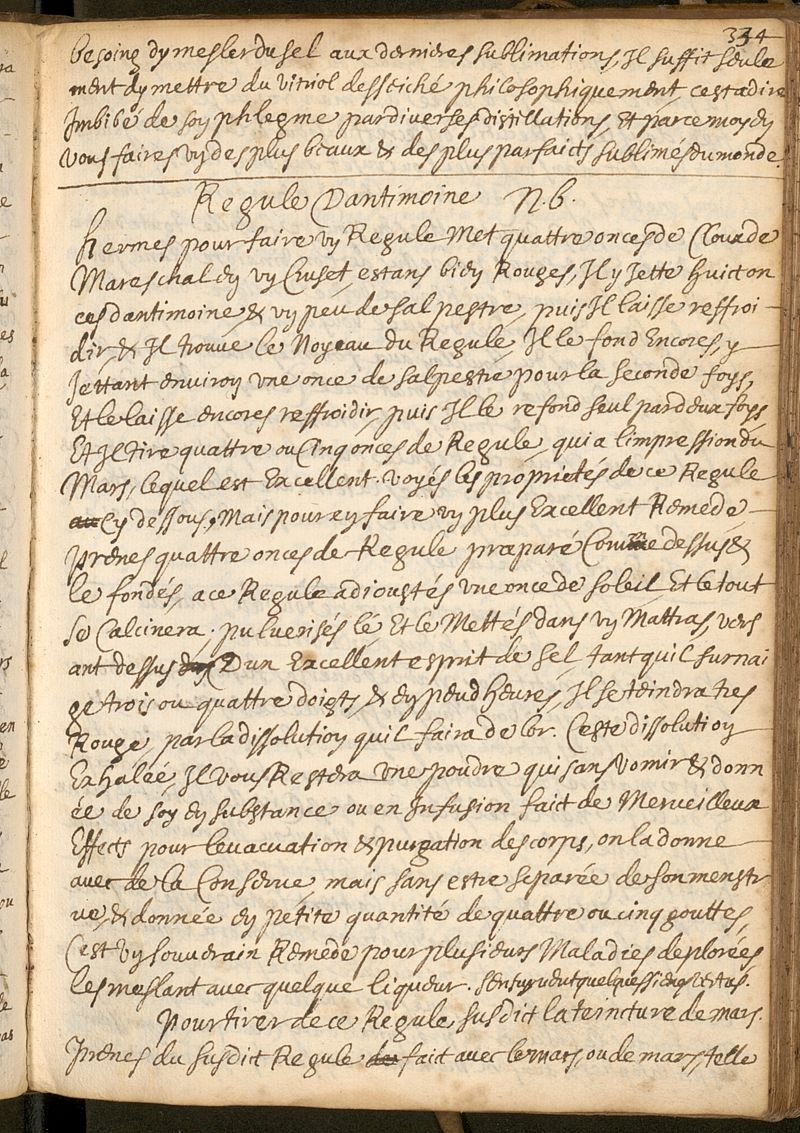 334
besoing dy mesler du sel aux dernieres sublimations, Il suffit seule
ment dy mettre du vitriol desseiché philosophiquement cest adire
Imbibé de soy phlegme par diverses distillations, Et par ce moyen
vous faires vy des plus beaux & des plus parfaicts sublimés du monde.
Regule Dantimoine N.b.
hermes pour faire vy Regule Met quattre onces de Clou de
Mareschal dy vy Cruset, estans bien Rouges, Il y Jette huict on
ces dantimoine & vy peu de salpestre, puis Il laisse reffroi
dir, & Il trouve le Noyeau du Regule, Il le fond Encores, y
Jettant environ vne once de salpestre pour la seconde foys,
Et le laisse encores reffroidir, puis Il le refond seul par deux foys
Et Il tire quattre ou Cinq onces de Regule, qui a limpression du
Mars, lequel est Excellent. voyés les proprietés de ce Regule
Cy dessous, Mais pour en faire vy plus Excellent Remede
prenes quattre onces de Regule præparé Comme dessus &
le fondés, a ce Regule adioustés vne once de soleil Et le tout
se Calcinera, puluerisés lé Et le Mettés dans vy Mattras, vers
ant dessus Dun Excellent esprit de sel, tant quil surnai
ge trois ou quattre doigts, & en peu dheures, Il se teindra tres
Rouge, par la dissolution quil faira de lor. Ceste dissolution
Exhalée, Il vous Restera vne poudre qui sans vomir & donn
ée de soy en substance ou en Infusion faict de Merveilleux
Effects pour levacuation & purgation des corps, on la donne
avec de la Conserve, mais sans estre separée de son menstr
ue, & donnée en petite quantité de quattre ou cinq gouttes,
Cest vy souverain Remede pour plusieurs Maladies deplorées
les meslant avec quelque liqueur.
Pour tirer de ce Regule susdict la teincture de mars.
Prenes du susdict Regule faict avec le mars, ou de mars, telle